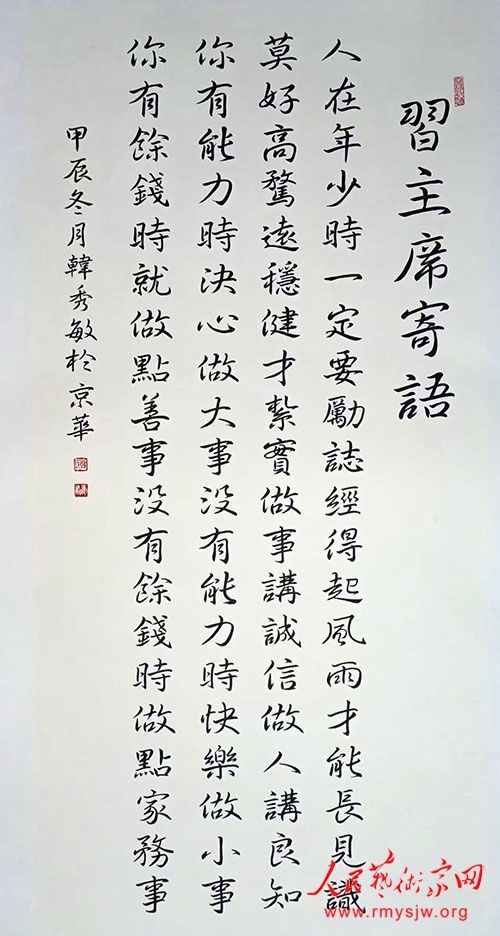 習主席寄語
人在年少時一定要勵誌經得起風雨才能長見識
莫好高騖遠穩健才紮實做事講誠信做人講良知
你有能力時決心做大事没有能力時快樂做小事
你有餘錢時就做點善事没有餘錢時做點家務事
甲辰冬月韓秀敏於京華
人民藝術家网
www.rmysjw.org